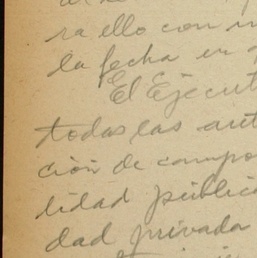 ra ello con
la fecha en
El Ejecut
todas las aut
ción de campo
lidad pública
dad privada